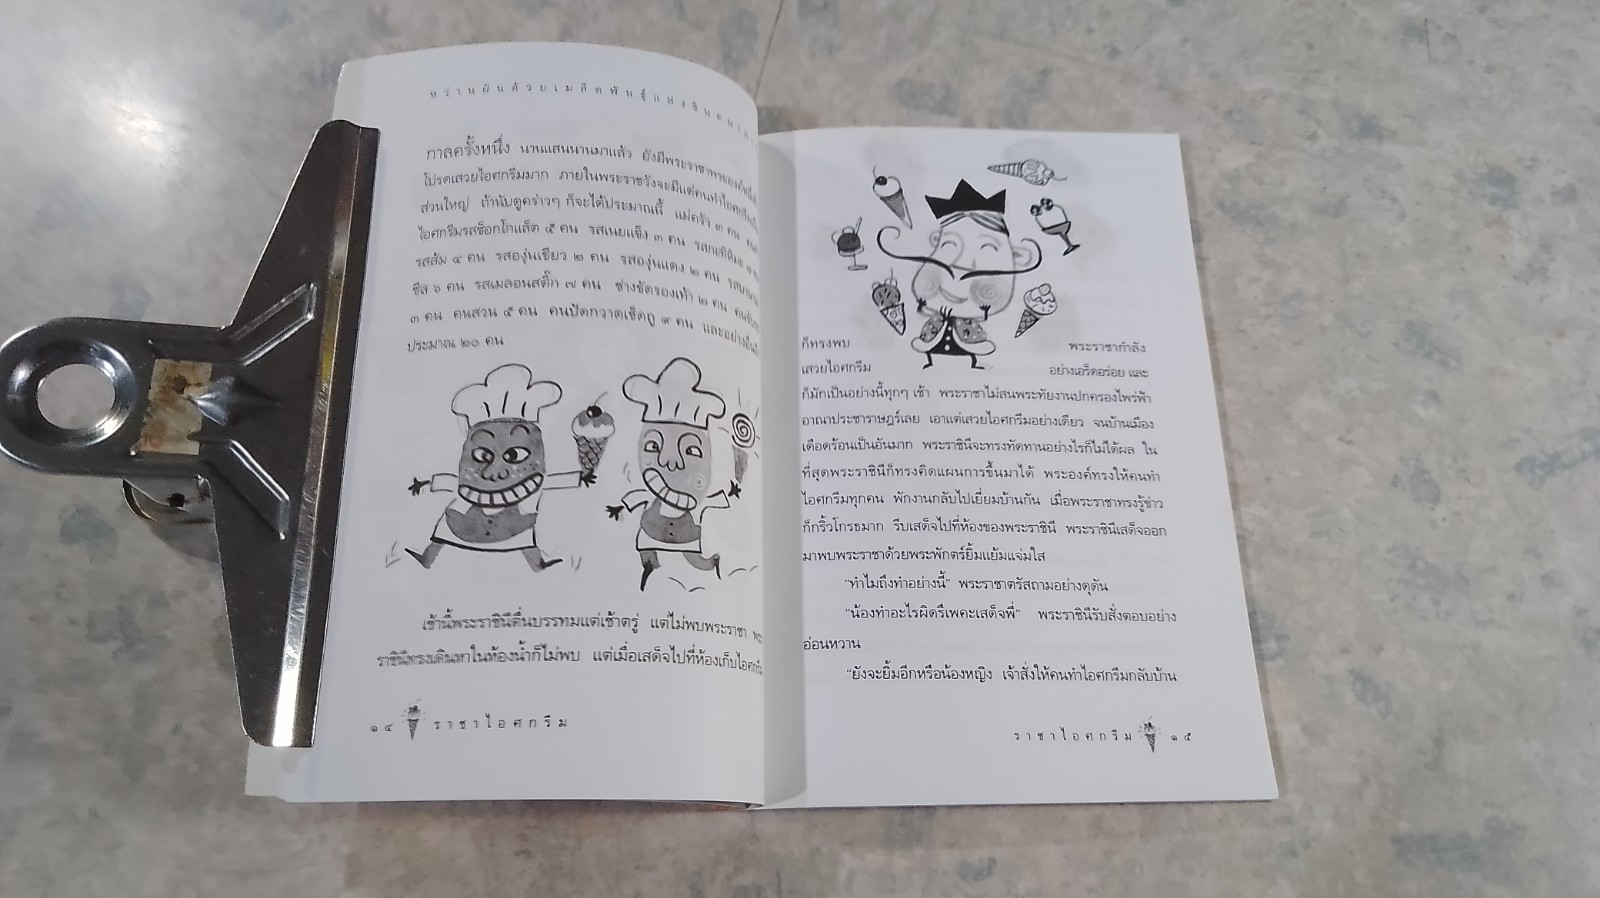 หว่านฝันด้วยเมล็ดพันธุ์แห่งจินตนา
กาลครั้งหนึ่ง นานแสนนานมาแล้ว ยังมีพระราชาพระองค์หนึ่ง
โปรดเสวยไอศกรีมมาก ภายในพระราชวังจะมีแต่คนทำไอศกรีมเป็น
ส่วนใหญ่ ถ้านับดูคร่าวๆ ก็จะได้ประมาณนี้ แม่ครัว ๓ คน
ไอศกรีมรสช็อกโกแล็ต ๕ คน รสเนยแข็ง ๓ คน รสกะทิ
รสส้ม ๔ คน รสองุ่นเขียว ๒ คน รสองุ่นแดง ๒ คน
ชีส ๖ คน รสเมลอนสติ๊ก ๗ คน ช่างขัดรองเท้า ๒ คน
๓ คน คนสวน ๕ คน คนปัดกวาดเช็ดถู ๙ คน และอย่างอื่นอีก
ประมาณ ๒๐ คน
เช้านี้พระราชินีตื่นบรรทมแต่เช้าตรู่ แต่ไม่พบพระราชา พระ
ราชินีทรงเดินหาในห้องน้ำก็ไม่พบ แต่เมื่อเสด็จไปที่ห้องเก็บไอศกรีม
๑๔ ราชาไอศกรีม
ก็ทรงพบ พระราชากำลัง
เสวยไอศกรีม อย่างเอร็ดอร่อย และ
ก็มักเป็นอย่างนี้ทุกๆ เช้า พระราชาไม่สนพระทัยงานปกครองไพร่ฟ้า
อาณาประชาราษฎร์เลย เอาแต่เสวยไอศกรีมอย่างเดียว จนบ้านเมือง
เดือดร้อนเป็นอันมาก พระราชินีจะทรงทัดทานอย่างไรก็ไม่ได้ผล ใน
ที่สุดพระราชินีก็ทรงคิดแผนการขึ้นมาได้ พระองค์ทรงให้คนทำ
ไอศกรีมทุกคน พักงานกลับไปเยี่ยมบ้านกัน เมื่อพระราชาทรงรู้ข่าว
ก็กริ้วโกรธมาก รีบเสด็จไปที่ห้องของพระราชินี พระราชินีเสด็จออก
มาพบพระราชาด้วยพระพักตร์ยิ้มแย้มแจ่มใส
“ทำไมถึงทำอย่างนี้” พระราชาตรัสถามอย่างดุดัน
“น้องทำอะไรผิดรึเพคะเสด็จพี่” พระราชินีรับสั่งตอบอย่าง
อ่อนหวาน
“ยังจะยิ้มอีกหรือน้องหญิง เจ้าสั่งให้คนทำไอศกรีมกลับบ้าน
ราชาไอศกรีม ๑๕